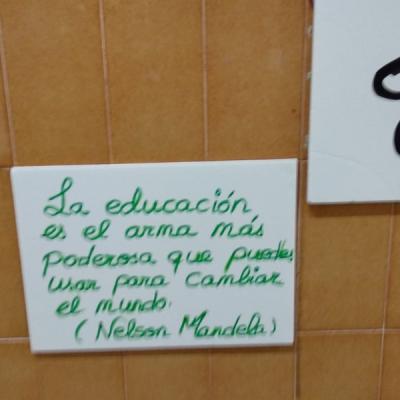 La educación
es el arma más
poderosa que puedes
usar para cambiar
el mundo.
(Nelson Mandela)